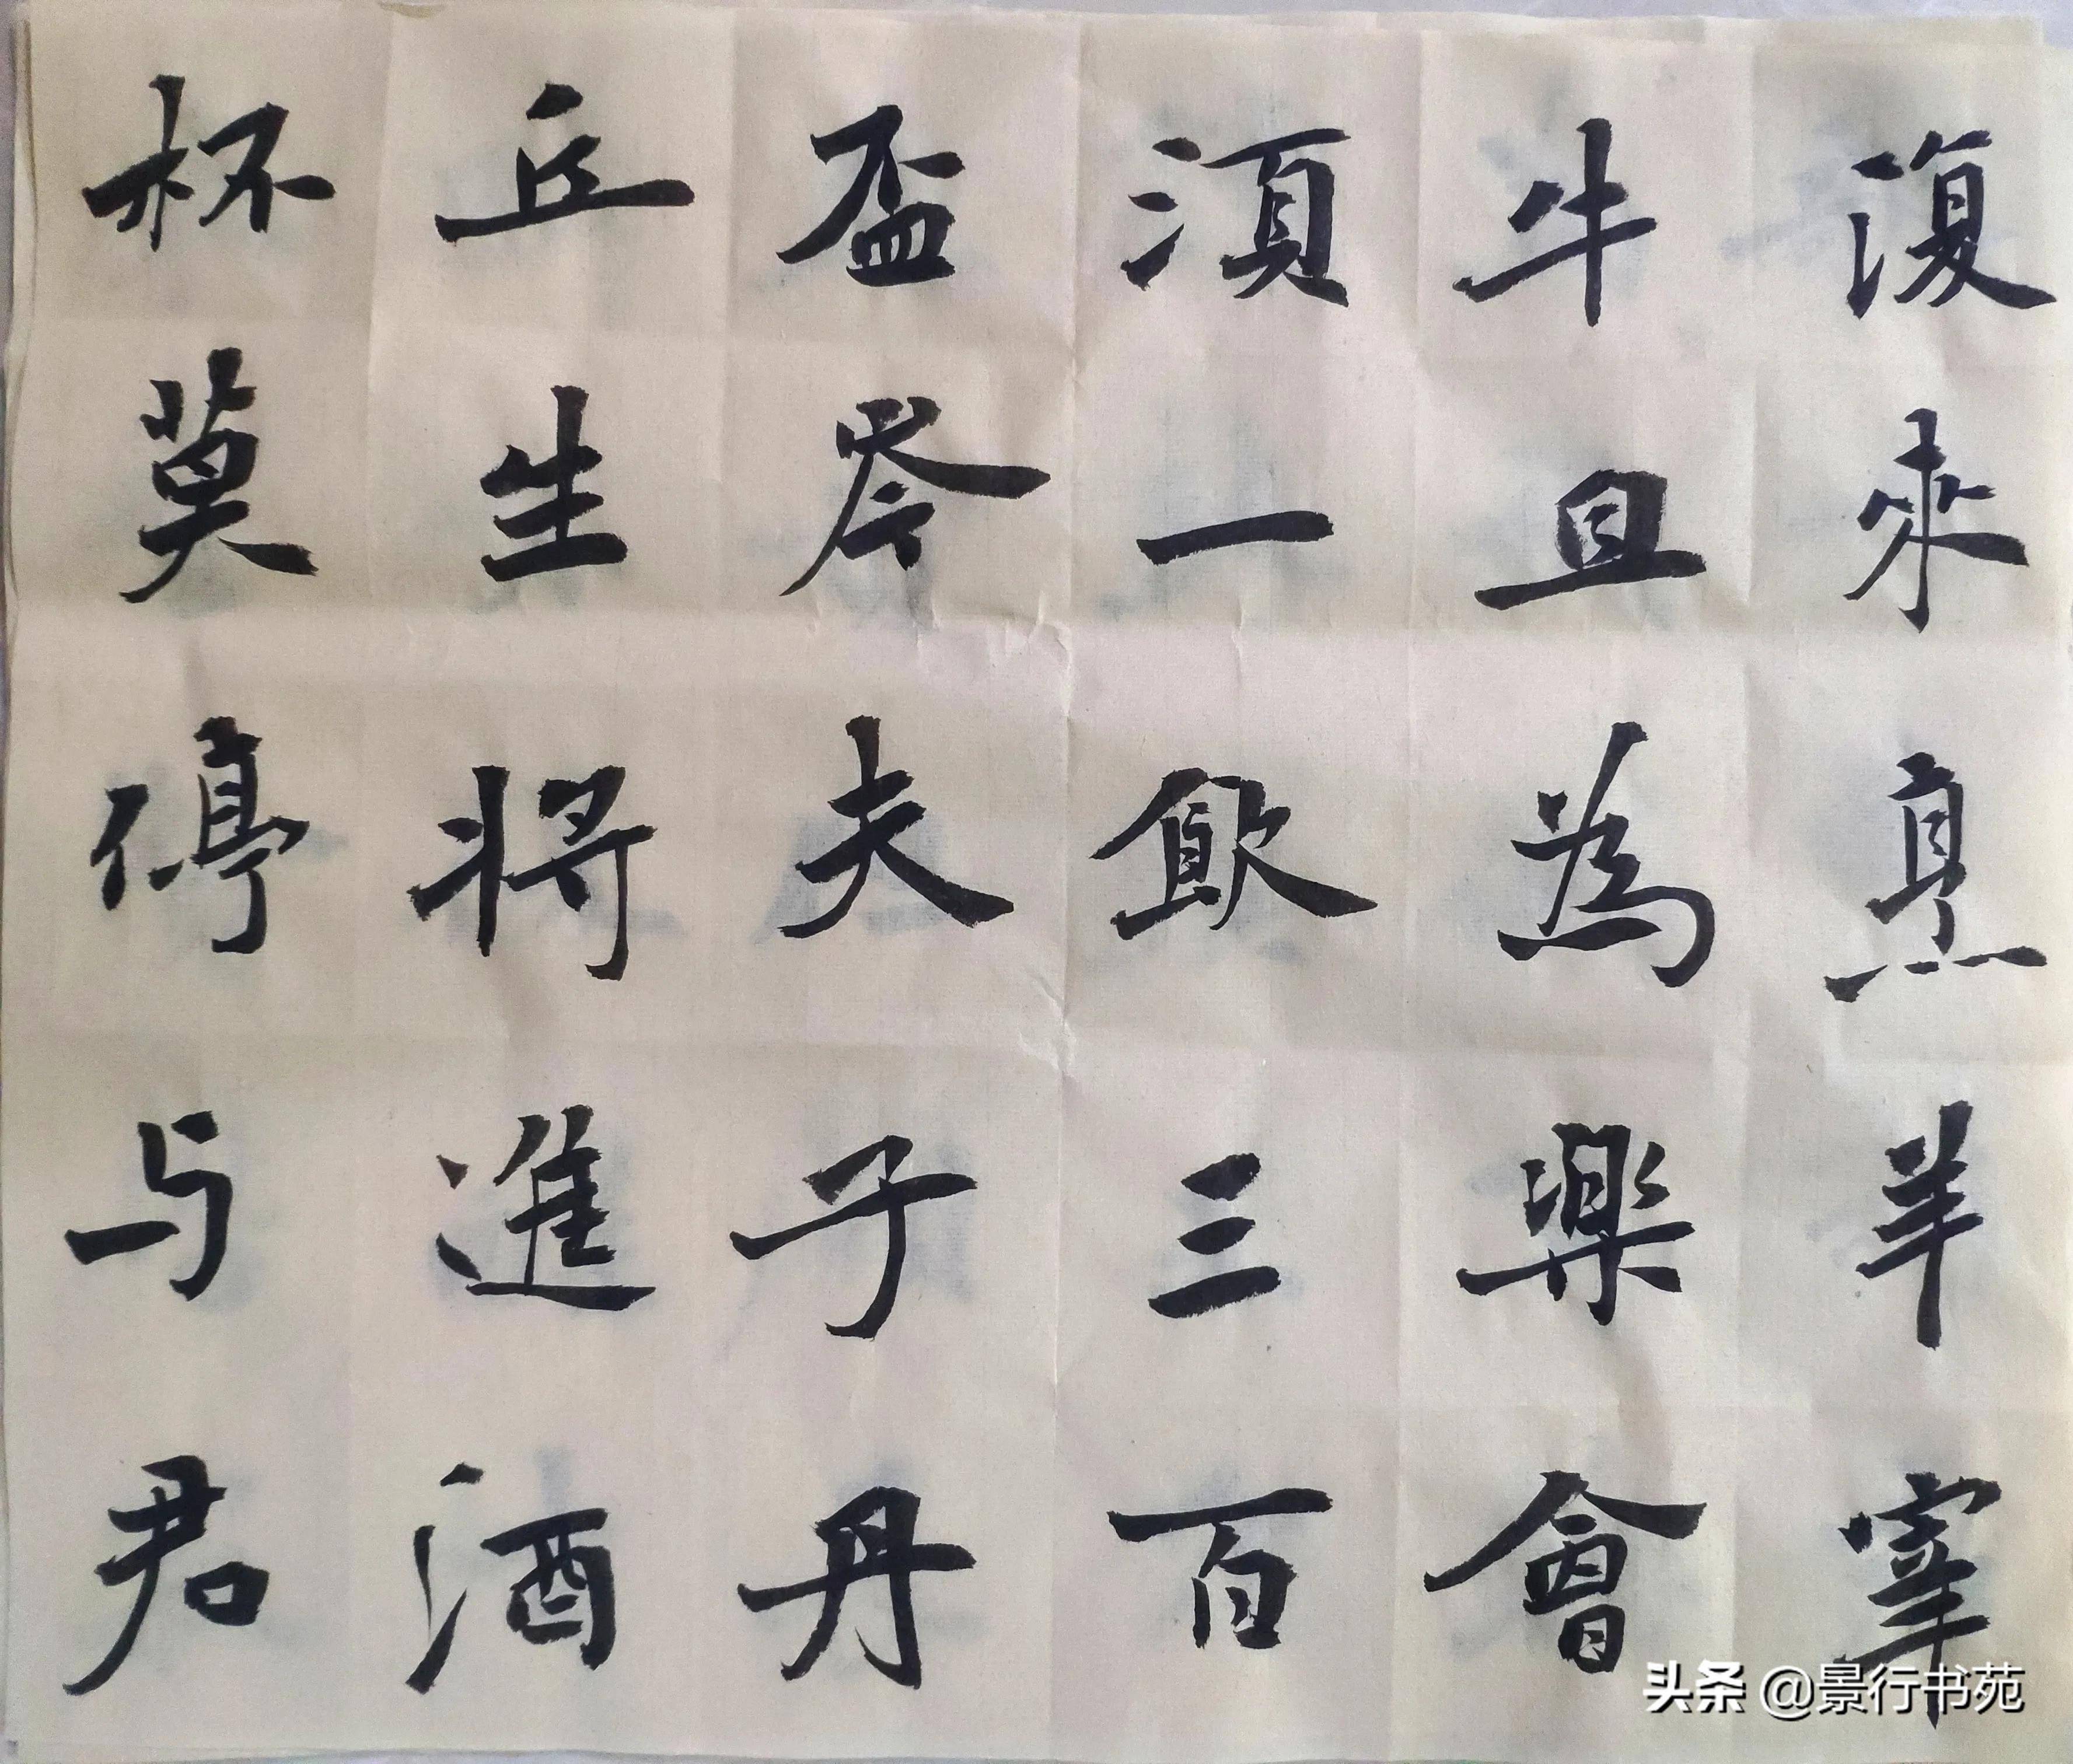 復來烹羊宰
牛且為樂會
須一飲三百
盃岑夫子丹
丘生將進酒
杯莫停与君
头条 @景行书苑